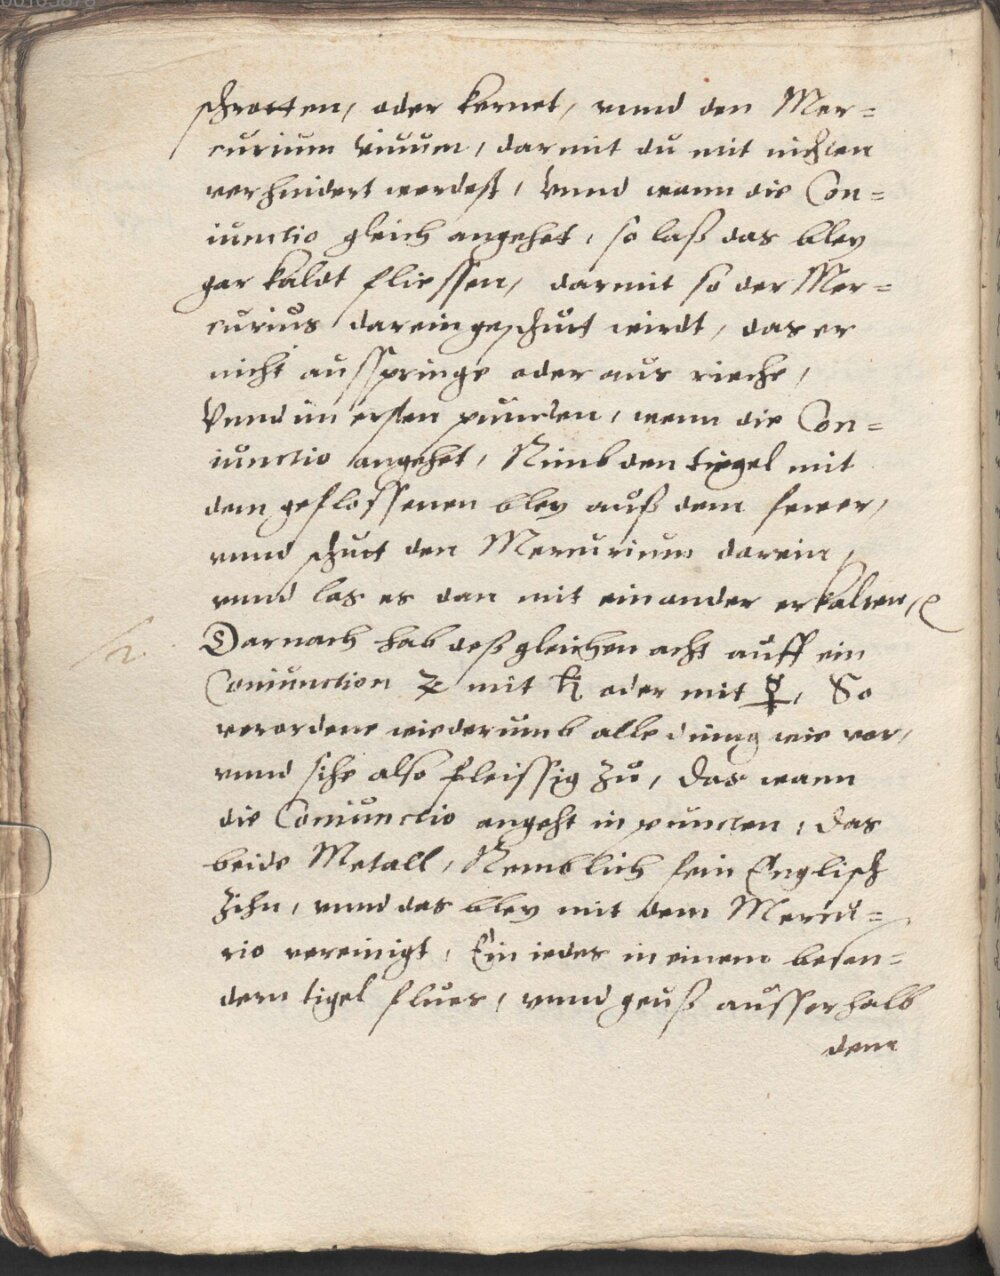 00165878
schrotten, oder kernet, vnnd den Mer=
curium viuum, darmit du mit nichten
verhindert werdest, Vnnd wann die Con=
iunctio gleich angehet, so laß das bley
gar kaldt fliessen, darmit so der Mer=
curius darein geschutt wirdt, das er
nicht ausspringe oder aus rieche,
Vnnd im ersten puncten, wenn die Con=
iunctio angehet, Nimb den tigel mit
dem geflossenen bley auß dem fewer,
vnnd schutt den Mercurium darein,
vnnd las es dan mit einander erkalten,
2.
Darnach hab deßgleichen acht auff ein
Coniunction ♃ mit ♄ oder mit ☿, So
verordene wiederumb alle ding wie vor,
vnnd sihe also fleissig zu, das wann
die Coniunctio angeht in puncten, das
beide Metall, Nemblich fein Englisch
Zihn, vnnd das bley mit dem Mercu=
rio vereinigt, Ein iedes in einem beson=
dern tigel flues, vnnd geuß ausserhalb
dem